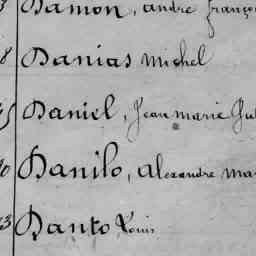 Damon, andre françoi
8 Danias Michel
Daniel, Jean Marie
Danilo, Alexandre Ma
3 Danto Louis